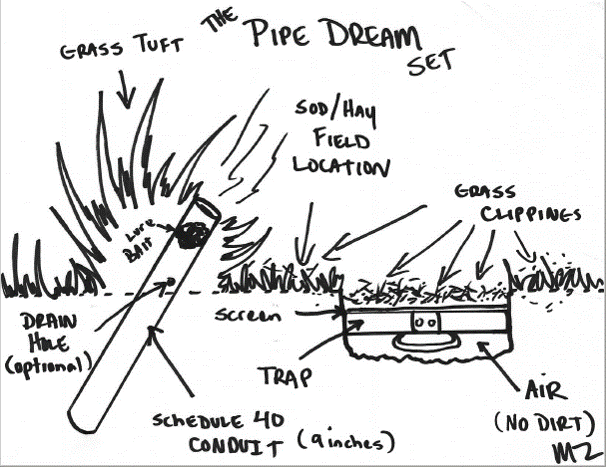 THE PIPE DREAM SET
GRASS TUFT
SOD/HAY
FIELD
LOCATION
GRASS
CLIPPINGS
LURE
BAIT
DRAIN
HOLE
(optional)
SCREEN
TRAP
AIR
(NO DIRT)
SCHEDULE 40
CONDUIT (9 inches)
MZ